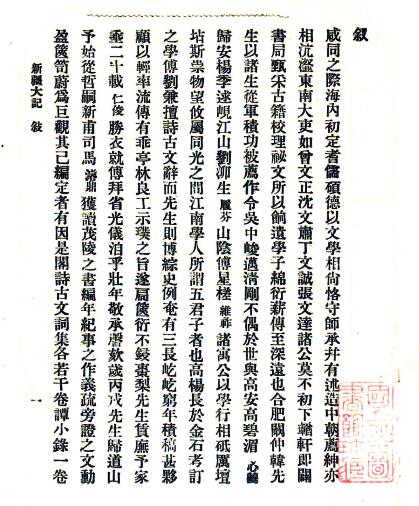 敘
咸同之際海內初定耆儒碩德以文學相尚恪守師承幷有述造中朝薦紳亦
相沆瀣東南大吏如曾文正沈文肅丁文誠張文達諸公莫不初下輶軒卽闢
書局甄宋古籍校理祕文所以餉遺學子綿衍薪傳至深遠也合肥闞仲韓先
生以諸生從軍積功被薦作令吳中峻邁淸剛不偶於世與高安高碧湄心夔
歸安楊季逑峴江山劉泖生履芬山陰傅星槎維祚諸寓公以學行相砥厲壇
坫斯崇物望攸屬同光之間江南學人所謂五君子者也高楊長於金石考訂
之學傅劉兼擅詩古文辭而先生則博綜史例奄有三長矻矻窮年積稿甚夥
顧以輕率流傳有乖亭林良工示璞之旨遂扃篋衍不鋟棗梨先生賃廡予家
垂二十載仁俊勝衣就傅拜省光儀洎乎壯年敬承謦欬歲丙戌先生歸道山
予始從哲嗣新甫司馬濬鼎獲讀茂陵之書編年紀事之作義疏旁證之文動
盈篋笥蔚爲巨觀其已編定者有因是閣詩古文詞集各若干卷譚小錄一卷
新疆大記 敘 一